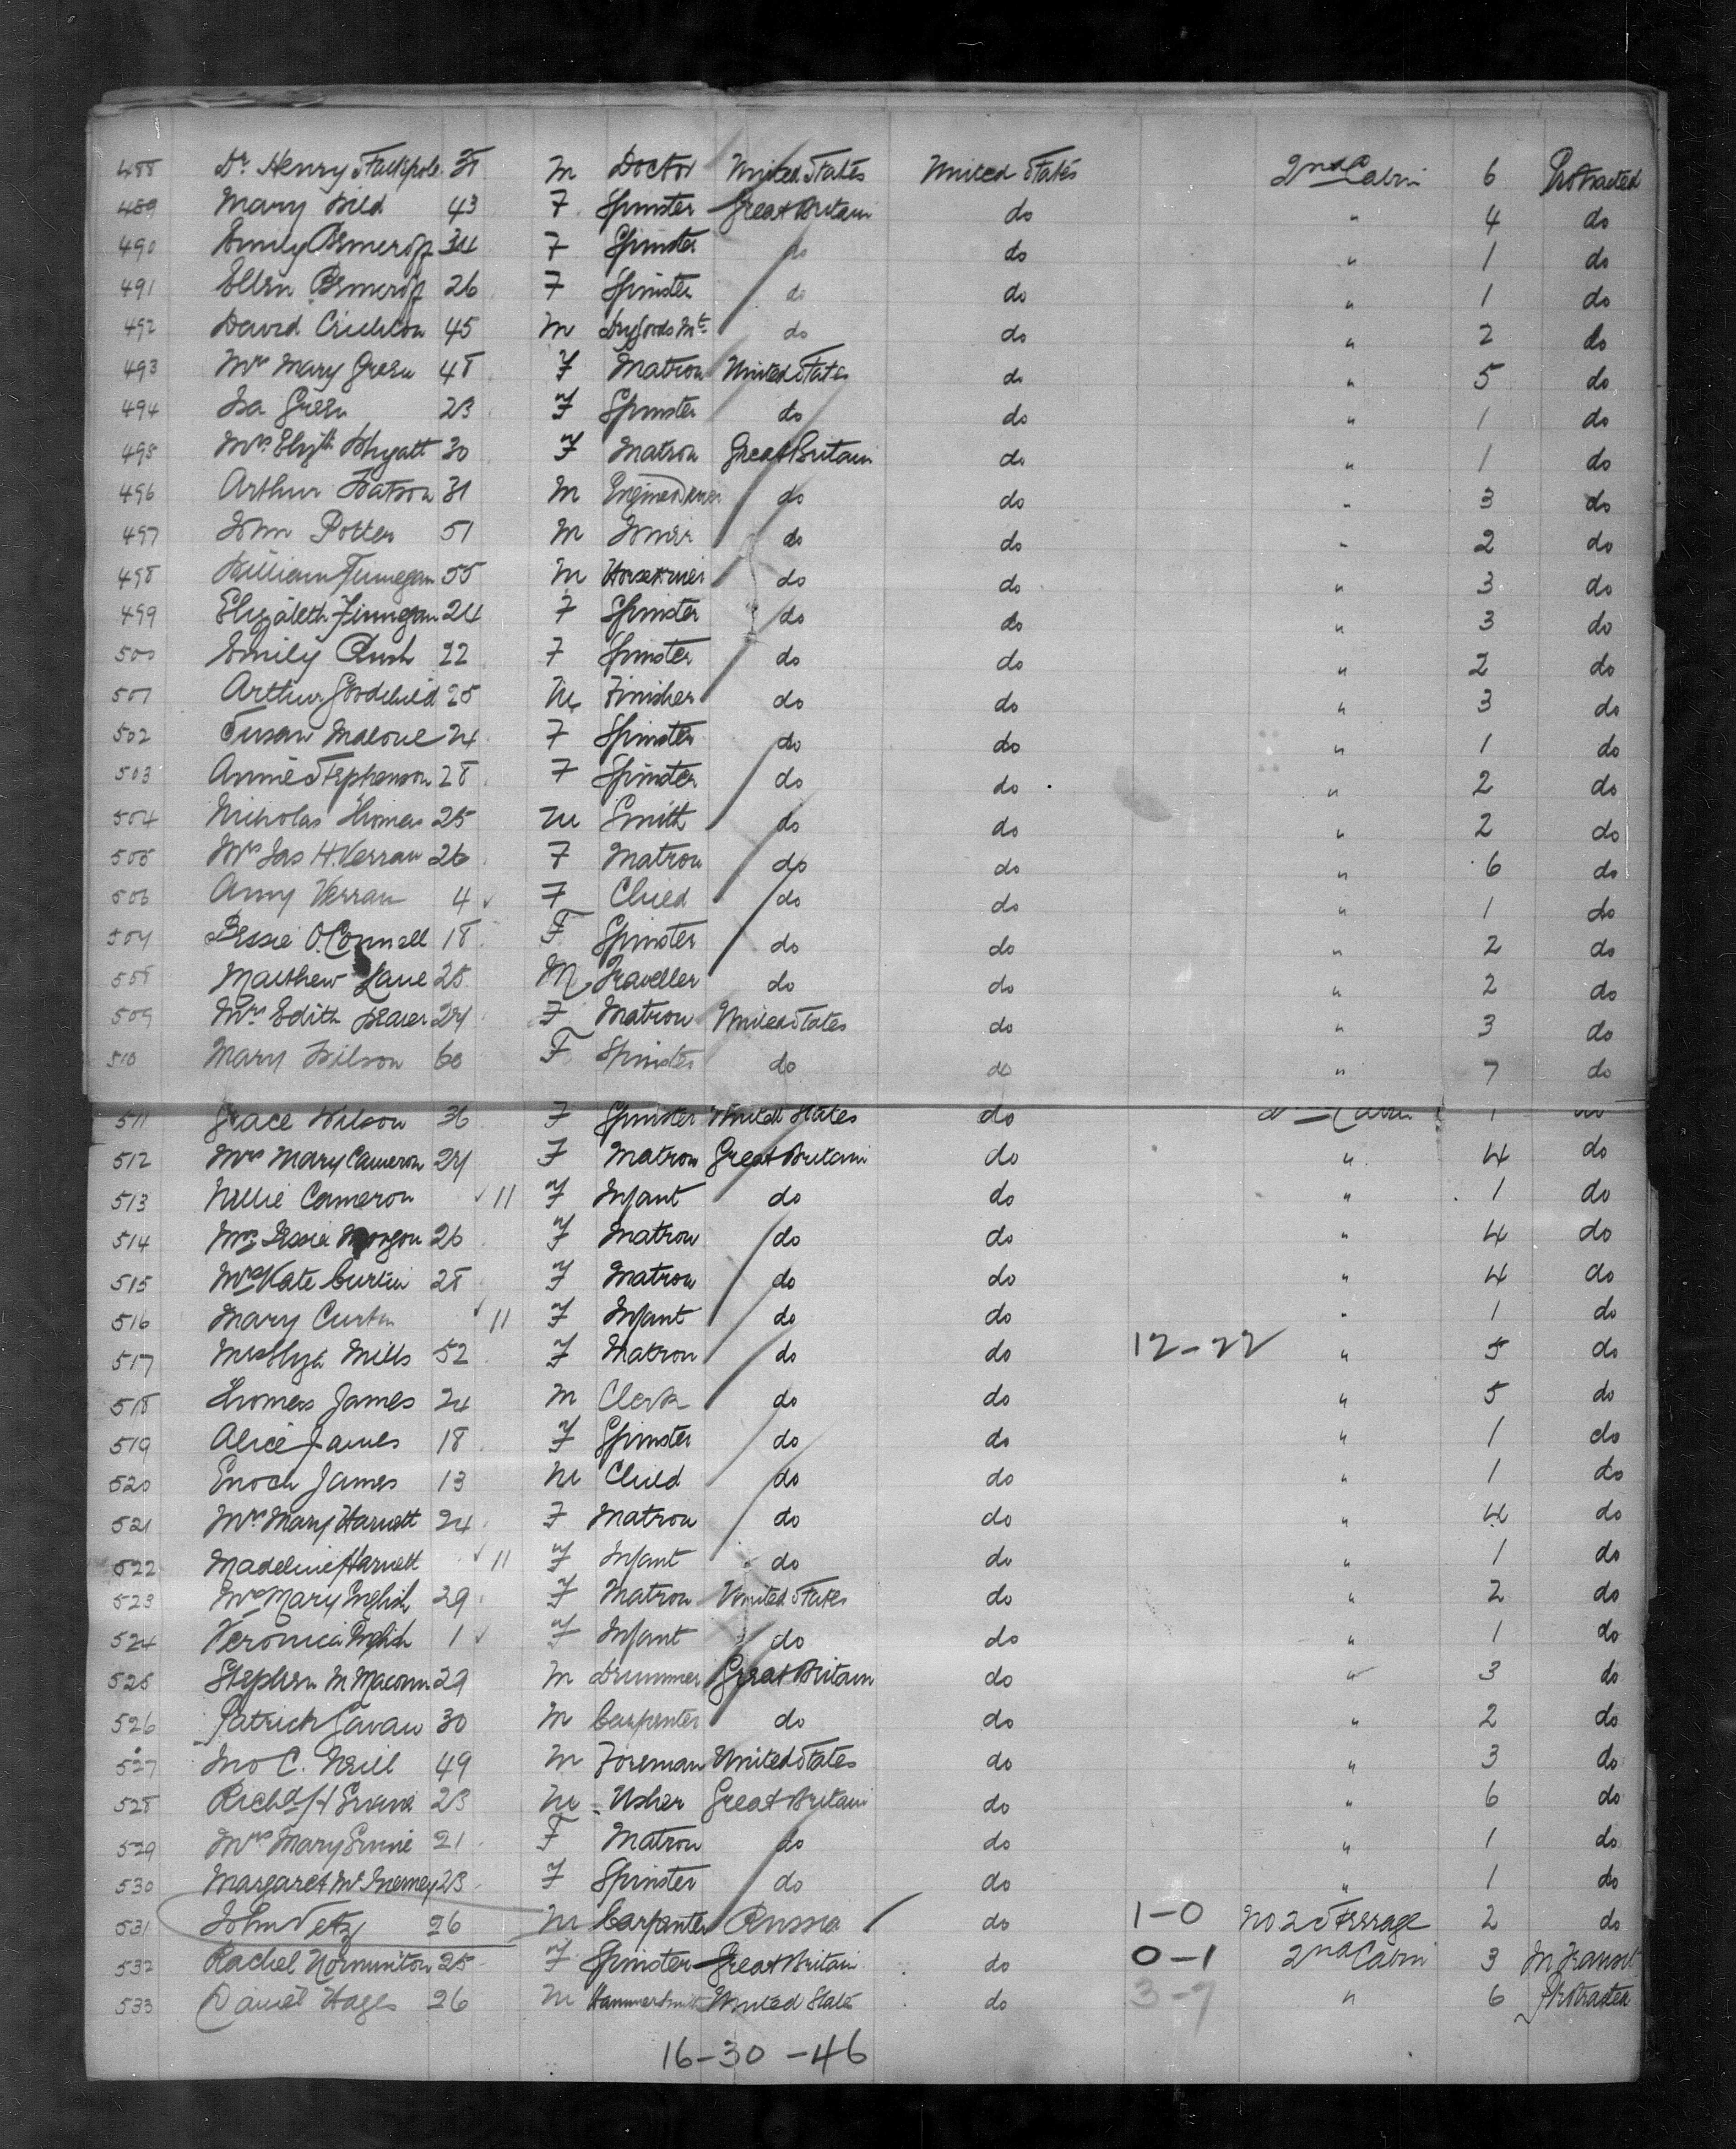 488 Dr Henry Stackpole 38 M Doctor United States United States 2nd Cabin 6 Protracted
489 Mary Wild 43 F Spinster Great Britain do " 4 do
490 Emily 34 F Spinster do do " 1 do
491 Ellen 26 F Spinster do do " 1 do
492 David Crichton 45 M Drygoods Mt do do " 2 do
493 Mrs Mary Green 48 F Matron United States do " 5 do
494 Isa Green 23 F Spinster do do " 1 do
495 Mrs Elizth Whyatt 30 F Matron Great Britain do " 1 do
496 Arthur Watson 31 M do do " 3 do
497 John Potter 51 M do do " 2 do
498 William Finnegan 55 M do do " 3 do
499 Elizabeth Finnegan 24 F Spinster do do " 3 do
500 Emily Rush 22 F Spinster do do " 2 do
501 Arthur Goodchild 25 M Finisher do do " 3 do
502 Susan Malone 24 F Spinster do do " 1 do
503 Annie Stephenson 28 F Spinster do do " 2 do
504 Nicholas Thomas 25 M Smith do do " 2 do
505 Mrs Jas H. Verran 26 F Matron do do " 6 do
506 Amy Verran 4 F Child do do " 1 do
507 Bessie O'Connell 18 F Spinster do do " 2 do
508 Matthew Lane 25 M Traveller do do " 2 do
509 Mrs Edith 24 F Matron United States do " 3 do
510 Mary Wilson 60 F Spinster do do " 7 do
511 Grace Wilson 36 F Spinster United States do 2nd Cabin 1 do
512 Mrs Mary Cameron 24 F Matron Great Britain do " 4 do
513 Nellie Cameron 11 F Infant do do " 1 do
514 Mrs Jessie Morgan 26 F Matron do do " 4 do
515 Mrs Kate Curtin 28 F Matron do do " 4 do
516 Mary Curtin 11 F Infant do do " 1 do
517 Mrs Elizth Mills 52 F Matron do do 12-22 " 5 do
518 Thomas James 24 M Clerk do do " 5 do
519 Alice James 18 F Spinster do do " 1 do
520 Enoch James 13 M Child do do " 1 do
521 Mrs Mary Harnett 24 F Matron do do " 4 do
522 Madeline Harnett 11 F Infant do do " 1 do
523 Mrs Mary English 29 F Matron United States do " 2 do
524 Veronica English 1 F Infant do do " 1 do
525 Stephen M 29 M Drummer Great Britain do " 3 do
526 Patrick Cavan 30 M Carpenter do do " 2 do
527 Jno C. Neill 49 M Foreman United States do " 3 do
528 Richd H Evans 23 M Usher Great Britain do " 6 do
529 Mrs Mary 21 F Matron do do " 1 do
530 Margaret McInerney 23 F Spinster do do " 1 do
531 John 26 M Carpenter Russia do 1-0 No 2 Steerage 2 do
532 Rachel Norminton 25 F Spinster Great Britain do 0-1 2nd Cabin 3 In Transit
533 Daniel 26 M Hammersmith United States do 3-7 " 6 Protracted
16-30-46